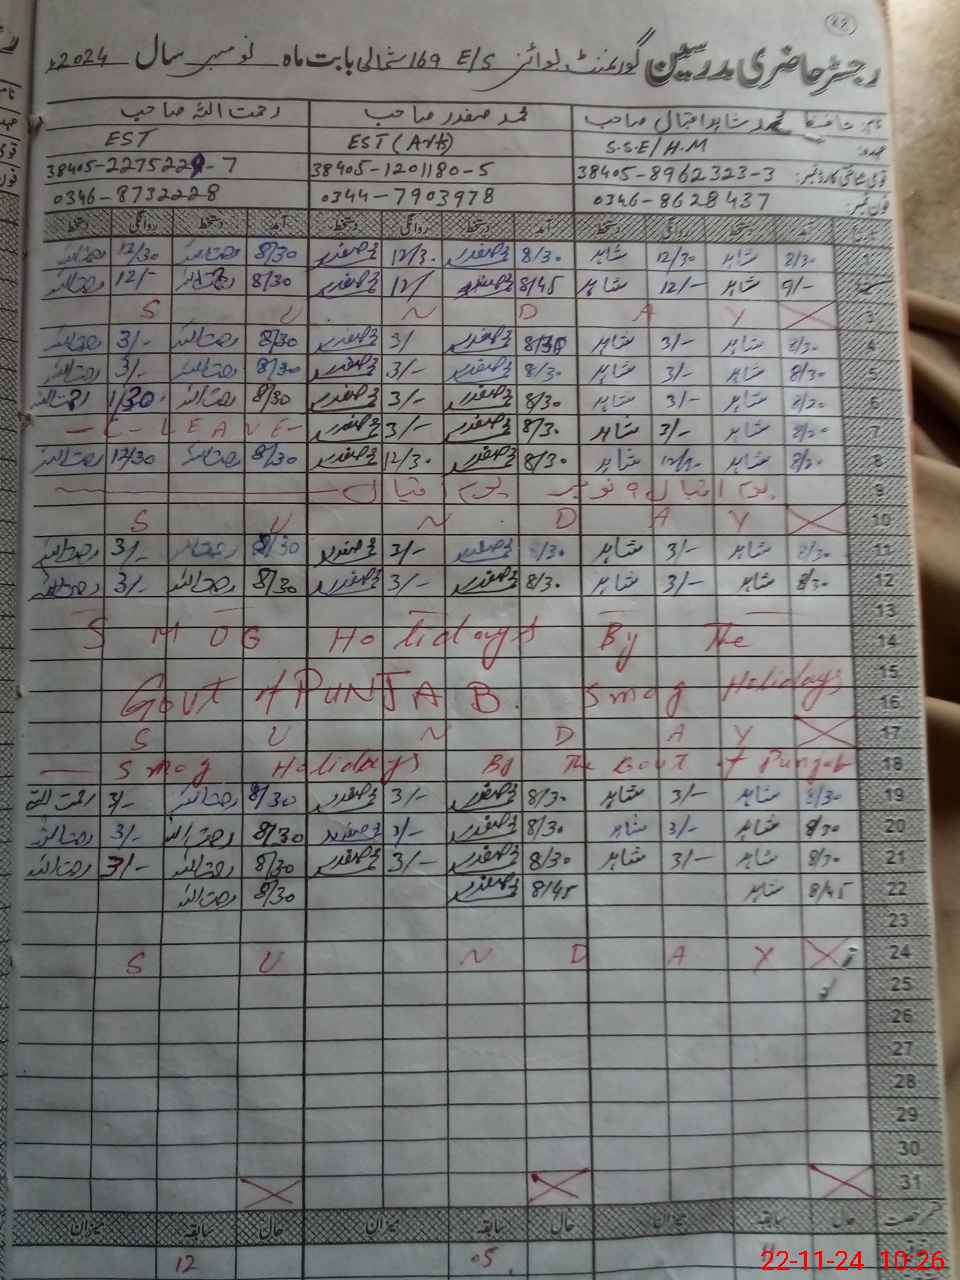 88
رجسٹر حاضری مدرسین گورنمنٹ بوائز E/S 169 شمالی بابت ماہ نومبر سال 2024ء
نام: حافظ محمد شاہد اقبال صاحب محمد صفدر صاحب رحمت اللہ صاحب
عہدہ: S.S.E/H.M EST (A-H) EST
قومی شناختی کارڈ نمبر: 38405-8962323-3 38405-1201180-5 38405-2275229-7
فون نمبر: 0346-8628437 0344-7903978 0346-8732228
آمد دستخط روانگی دستخط آمد دستخط روانگی دستخط آمد دستخط روانگی دستخط
1 8/30 شاہد 12/30 شاہد 8/30 صفدر 12/30 صفدر 8/30 رحمت اللہ 12/30 رحمت اللہ
2 9/- شاہد 12/- شاہد 8/45 صفدر 12/ صفدر 8/30 رحمت اللہ 12/- رحمت اللہ
3 S U N D A Y
4 8/30 شاہد 3/- شاہد 8/30 صفدر 3/ صفدر 8/30 رحمت اللہ 3/- رحمت اللہ
5 8/30 شاہد 3/- شاہد 8/30 صفدر 3/- صفدر 8/30 رحمت اللہ 3/- رحمت اللہ
6 8/30 شاہد 3/- شاہد 8/30 صفدر 3/- صفدر 8/30 رحمت اللہ 1/30 رحمت اللہ
7 8/30 شاہد 3/- شاہد 8/30 صفدر 3/- صفدر – C - L E A V E –
8 8/30 شاہد 12/30 شاہد 8/30 صفدر 12/30 صفدر 8/30 رحمت اللہ 12/30 رحمت اللہ
9 یوم اقبال 9 نومبر یوم اقبال
10 S U N D A Y
11 8/30 شاہد 3/- شاہد 8/30 صفدر 3/- صفدر 8/30 رحمت اللہ 3/- رحمت اللہ
12 8/30 شاہد 3/- شاہد 8/30 صفدر 3/- صفدر 8/30 رحمت اللہ 3/- رحمت اللہ
13
14 S M O G Holidays By The
15
16 Govt of PUNJAB. Smog Holidays
17 S U N D A Y
18 — Smog Holidays By The Govt of Punjab
19 8/30 شاہد 3/- شاہد 8/30 صفدر 3/- صفدر 8/30 رحمت اللہ 3/- رحمت اللہ
20 8/30 شاہد 3/- شاہد 8/30 صفدر 3/- صفدر 8/30 رحمت اللہ 3/- رحمت اللہ
21 8/30 شاہد 3/- شاہد 8/30 صفدر 3/- صفدر 8/30 رحمت اللہ 3/- رحمت اللہ
22 8/45 شاہد 8/45 صفدر 8/30 رحمت اللہ
23
24 S U N D A Y
25
26
27
28
29
30
31
حال سابقہ میزان حال سابقہ میزان حال سابقہ میزان
05 12
22-11-24 10:26